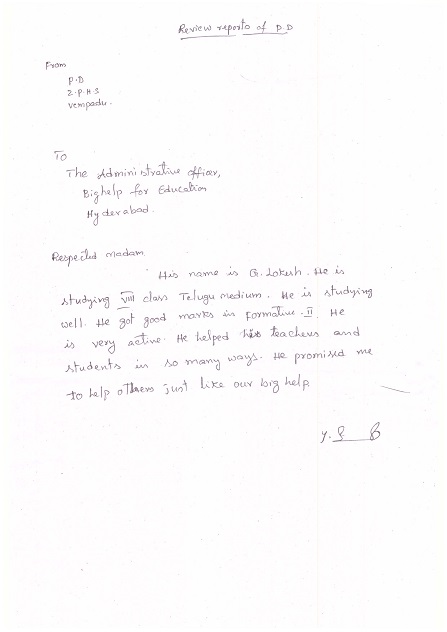 Review reports of P.D
From
P.D
Z.P.H.S
Vempadu.
To
The Administrative officer,
Bighelp for Education
Hyderabad.
Respected madam
His name is G. Lokesh. He is
studying VIII class Telugu medium. He is studying
well. He got good marks in Formative.II. He
is very active. He helped his teachers and
students in so many ways. He promised me
to help others just like our big help